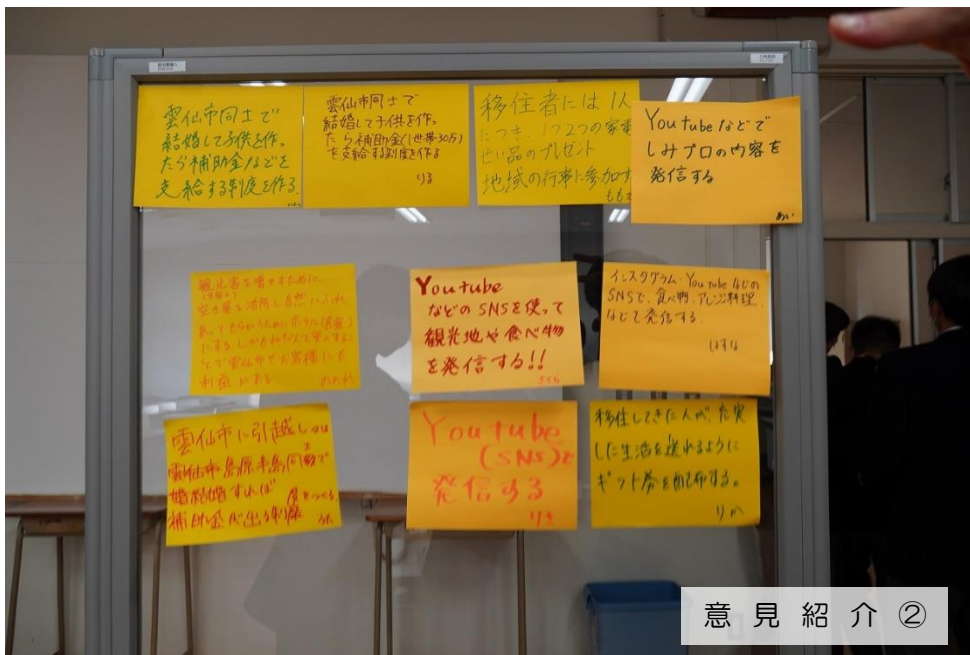 雲仙市同士で
結婚して子供を作っ
たら補助金などを
支給する制度を作る
雲仙市同士で
結婚して子供を作っ
たら補助金(1世帯30万)
を支給する制度を作る
りる
移住者には1人
につき、1つ2つの家電
せい品のプレゼント
地域の行事に参加す
Youtubeなどで
しみプロの内容を
発信する
あい
観光客を増やすために
空き屋を活用し自然にふれ
あってもらうためにホテル
にする。
とで雲仙市やお客様にも
利益がある
Youtube
などのSNSを使って
観光地や食べ物
を発信する!!
さくら
インスタグラム・Youtubeなどの
SNSで、食べ物、アレンジ料理、
などて発信する。
はすな
雲仙市に引越し
雲仙市島原半島同士で
結婚すれば
補助金が出る制度
うた
Youtube
(SNS)で
発信する
りき
移住してきた人が、充実
した生活を送れるように
ギフト券を配布する。
りか
意見紹介②